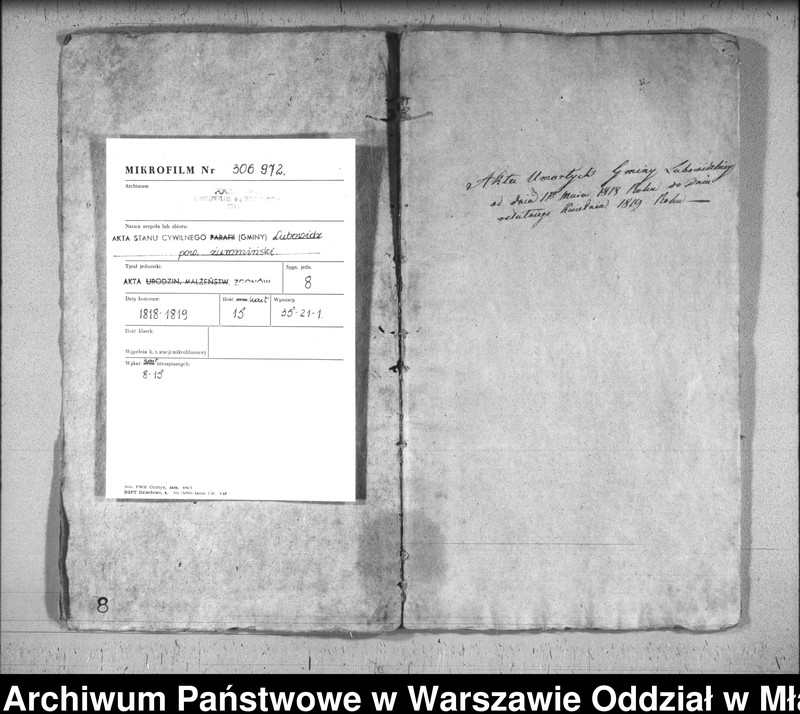 MIKROFILM Nr 306 972.
Archiwum
Nazwa zespołu lub zbioru:
AKTA STANU CYWILNEGO PARAFII (GMINY) Lubowidz
pow. żuromiński
Tytuł jednostki: Sygn. jedn.
AKTA URODZIN, MAŁŻEŃSTW, ZGONÓW 8
Daty końcowe: Ilość kart Wymiary
1818-1819 15 35-21-1.
Ilość klatek:
Wykaz niezapisanych:
8-15
8
Akta Umarłych Gminy
od dnia 1go Maia 1818 Roku do dnia
ostatniego Kwietnia 1819 Roku —
Archiwum Państwowe w Warszawie Oddział w Mła